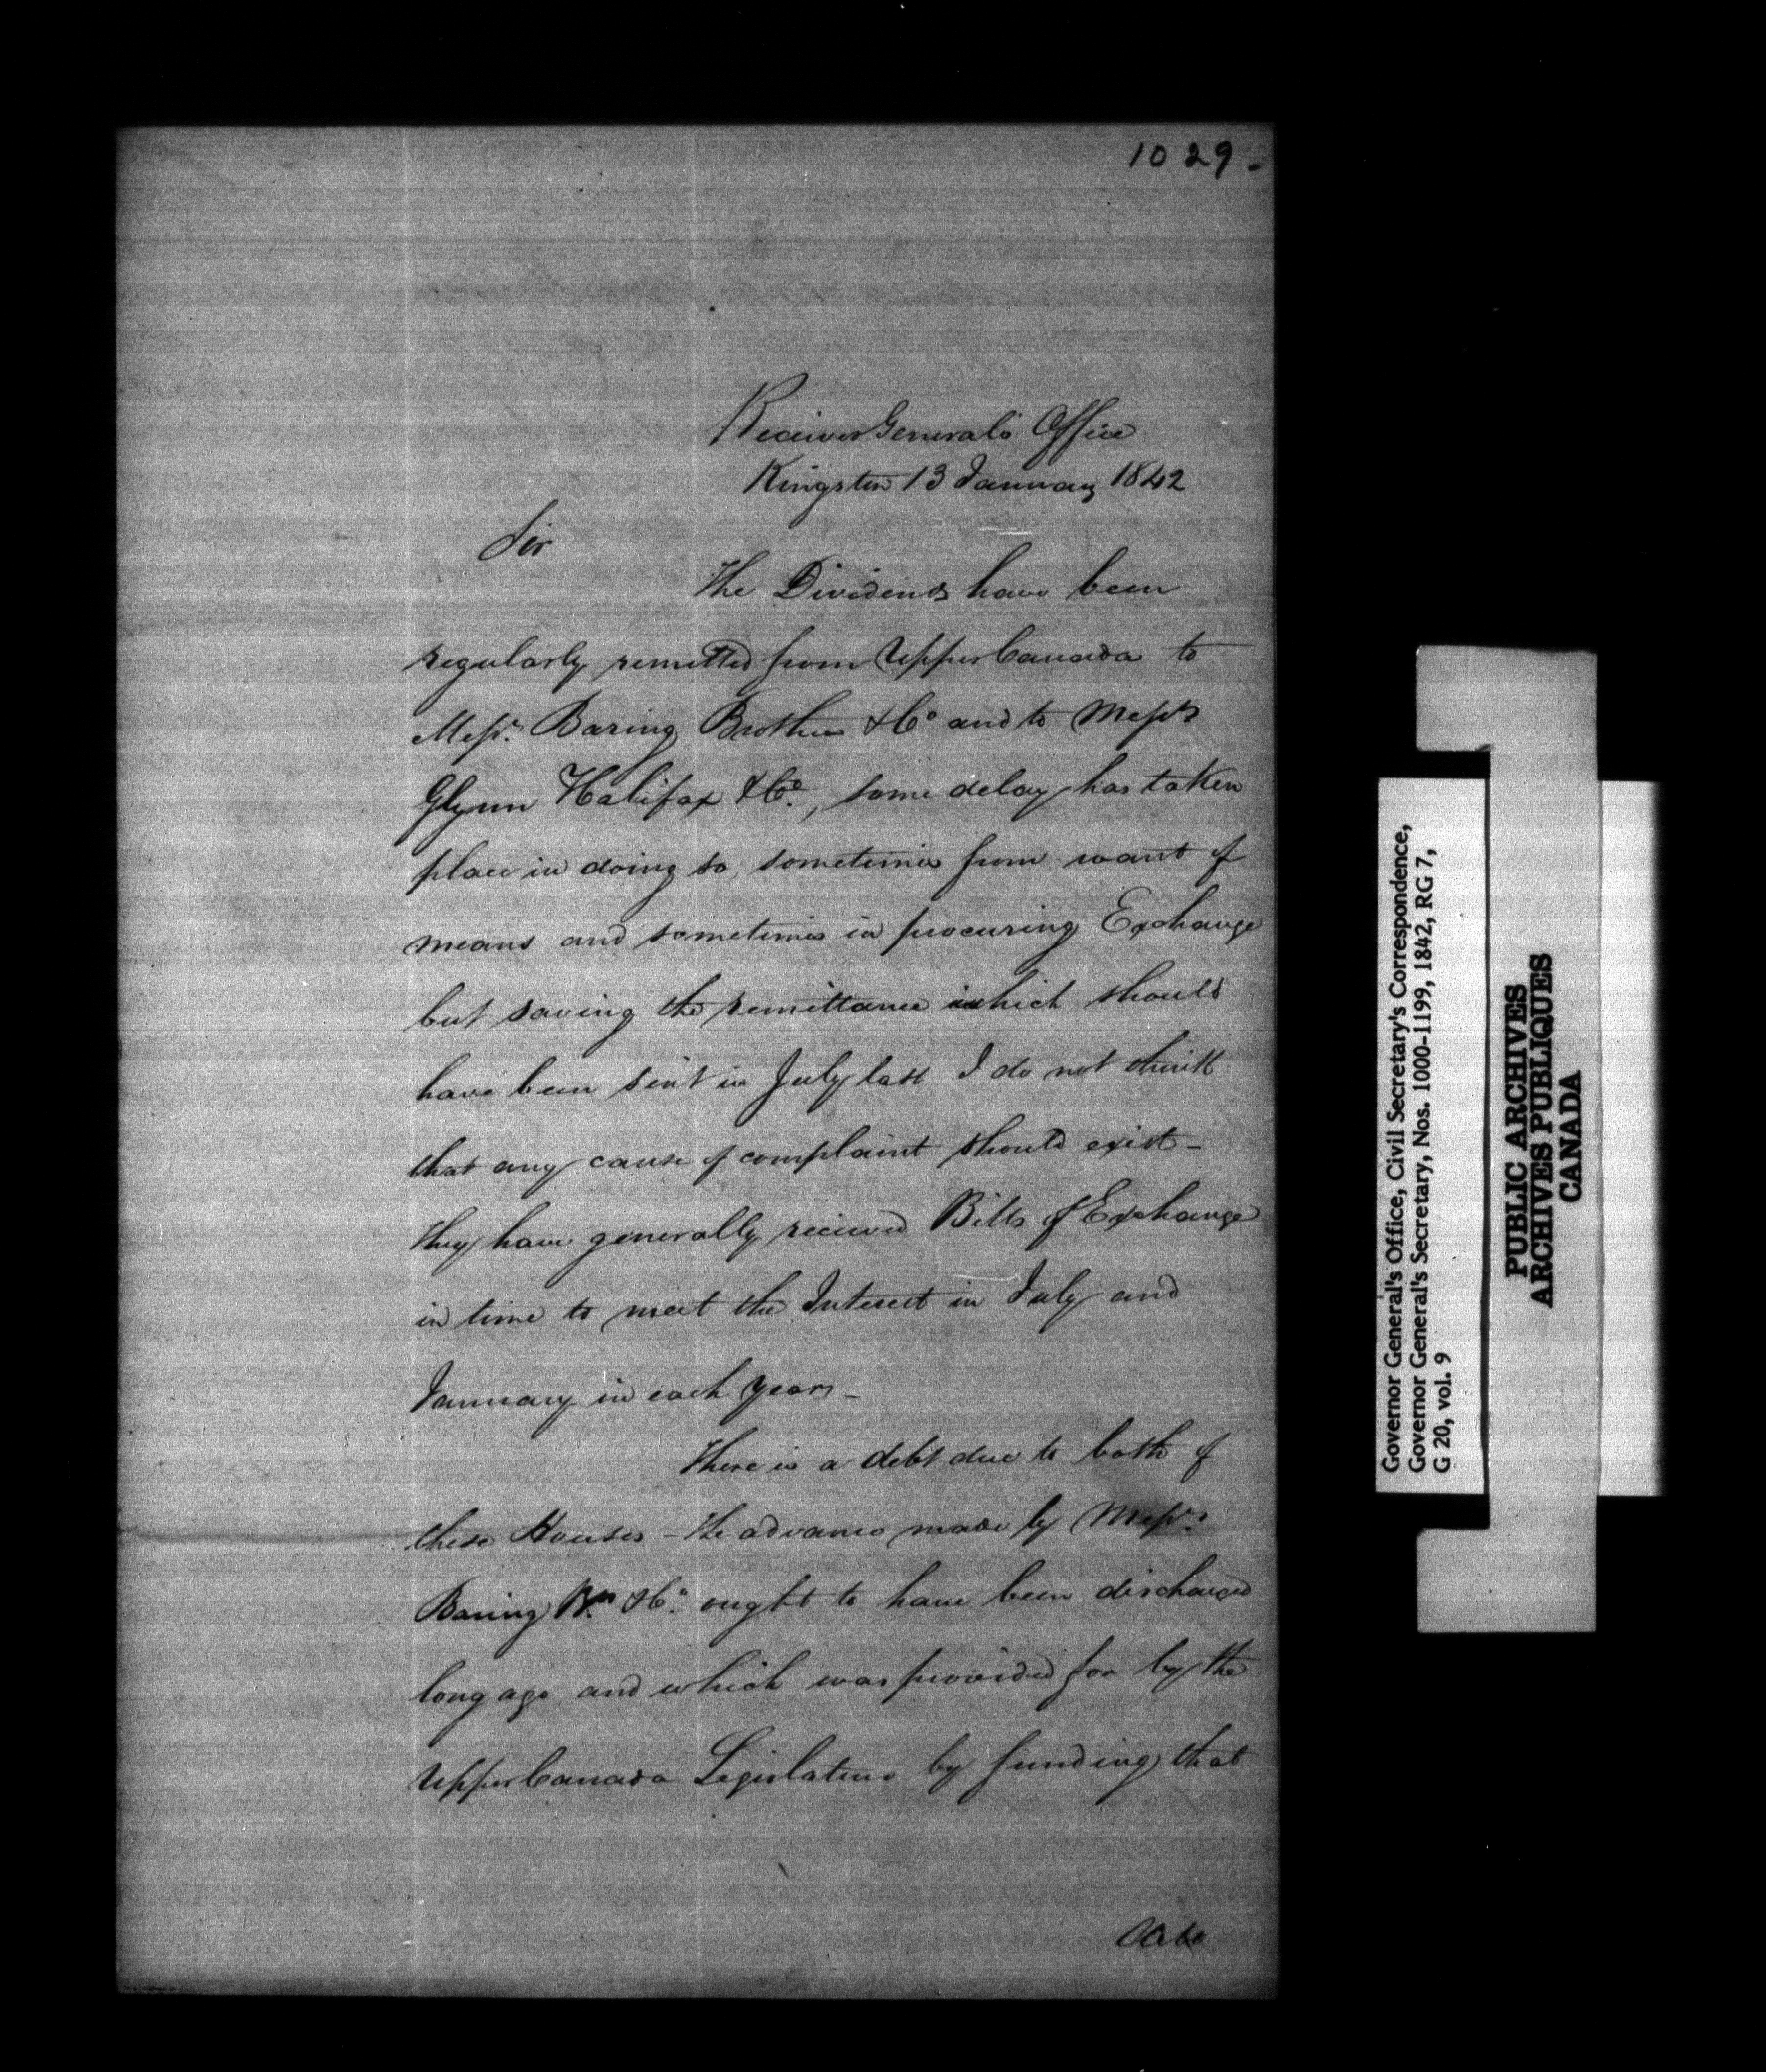 1029-
Receiver General's Office
Kingston 13 January 1842
Sir
The Dividends have been
regularly remitted from Upper Canada to
Messrs. Baring Brothers & Co and to Messrs
Glynn Halifax & Co., some delay has taken
place in doing so, sometimes from want of
means and sometimes in procuring Exchange
but saving the remittance which should
have been sent in July last I do not think
that any cause of complaint should exist -
They have generally received Bills of Exchange
in time to meet the Interest in July and
January in each year -
There is a debt due to both of
these Houses - The advance made by Messrs.
Baring Brs. & Co. ought to have been discharged
long ago and which was provided for by the
Upper Canada Legislature by funding that
Debt
Governor General's Office, Civil Secretary's Correspondence,
Governor General's Secretary, Nos. 1000-1199, 1842, RG 7,
G 20, vol. 9
PUBLIC ARCHIVES
ARCHIVES PUBLIQUES
CANADA